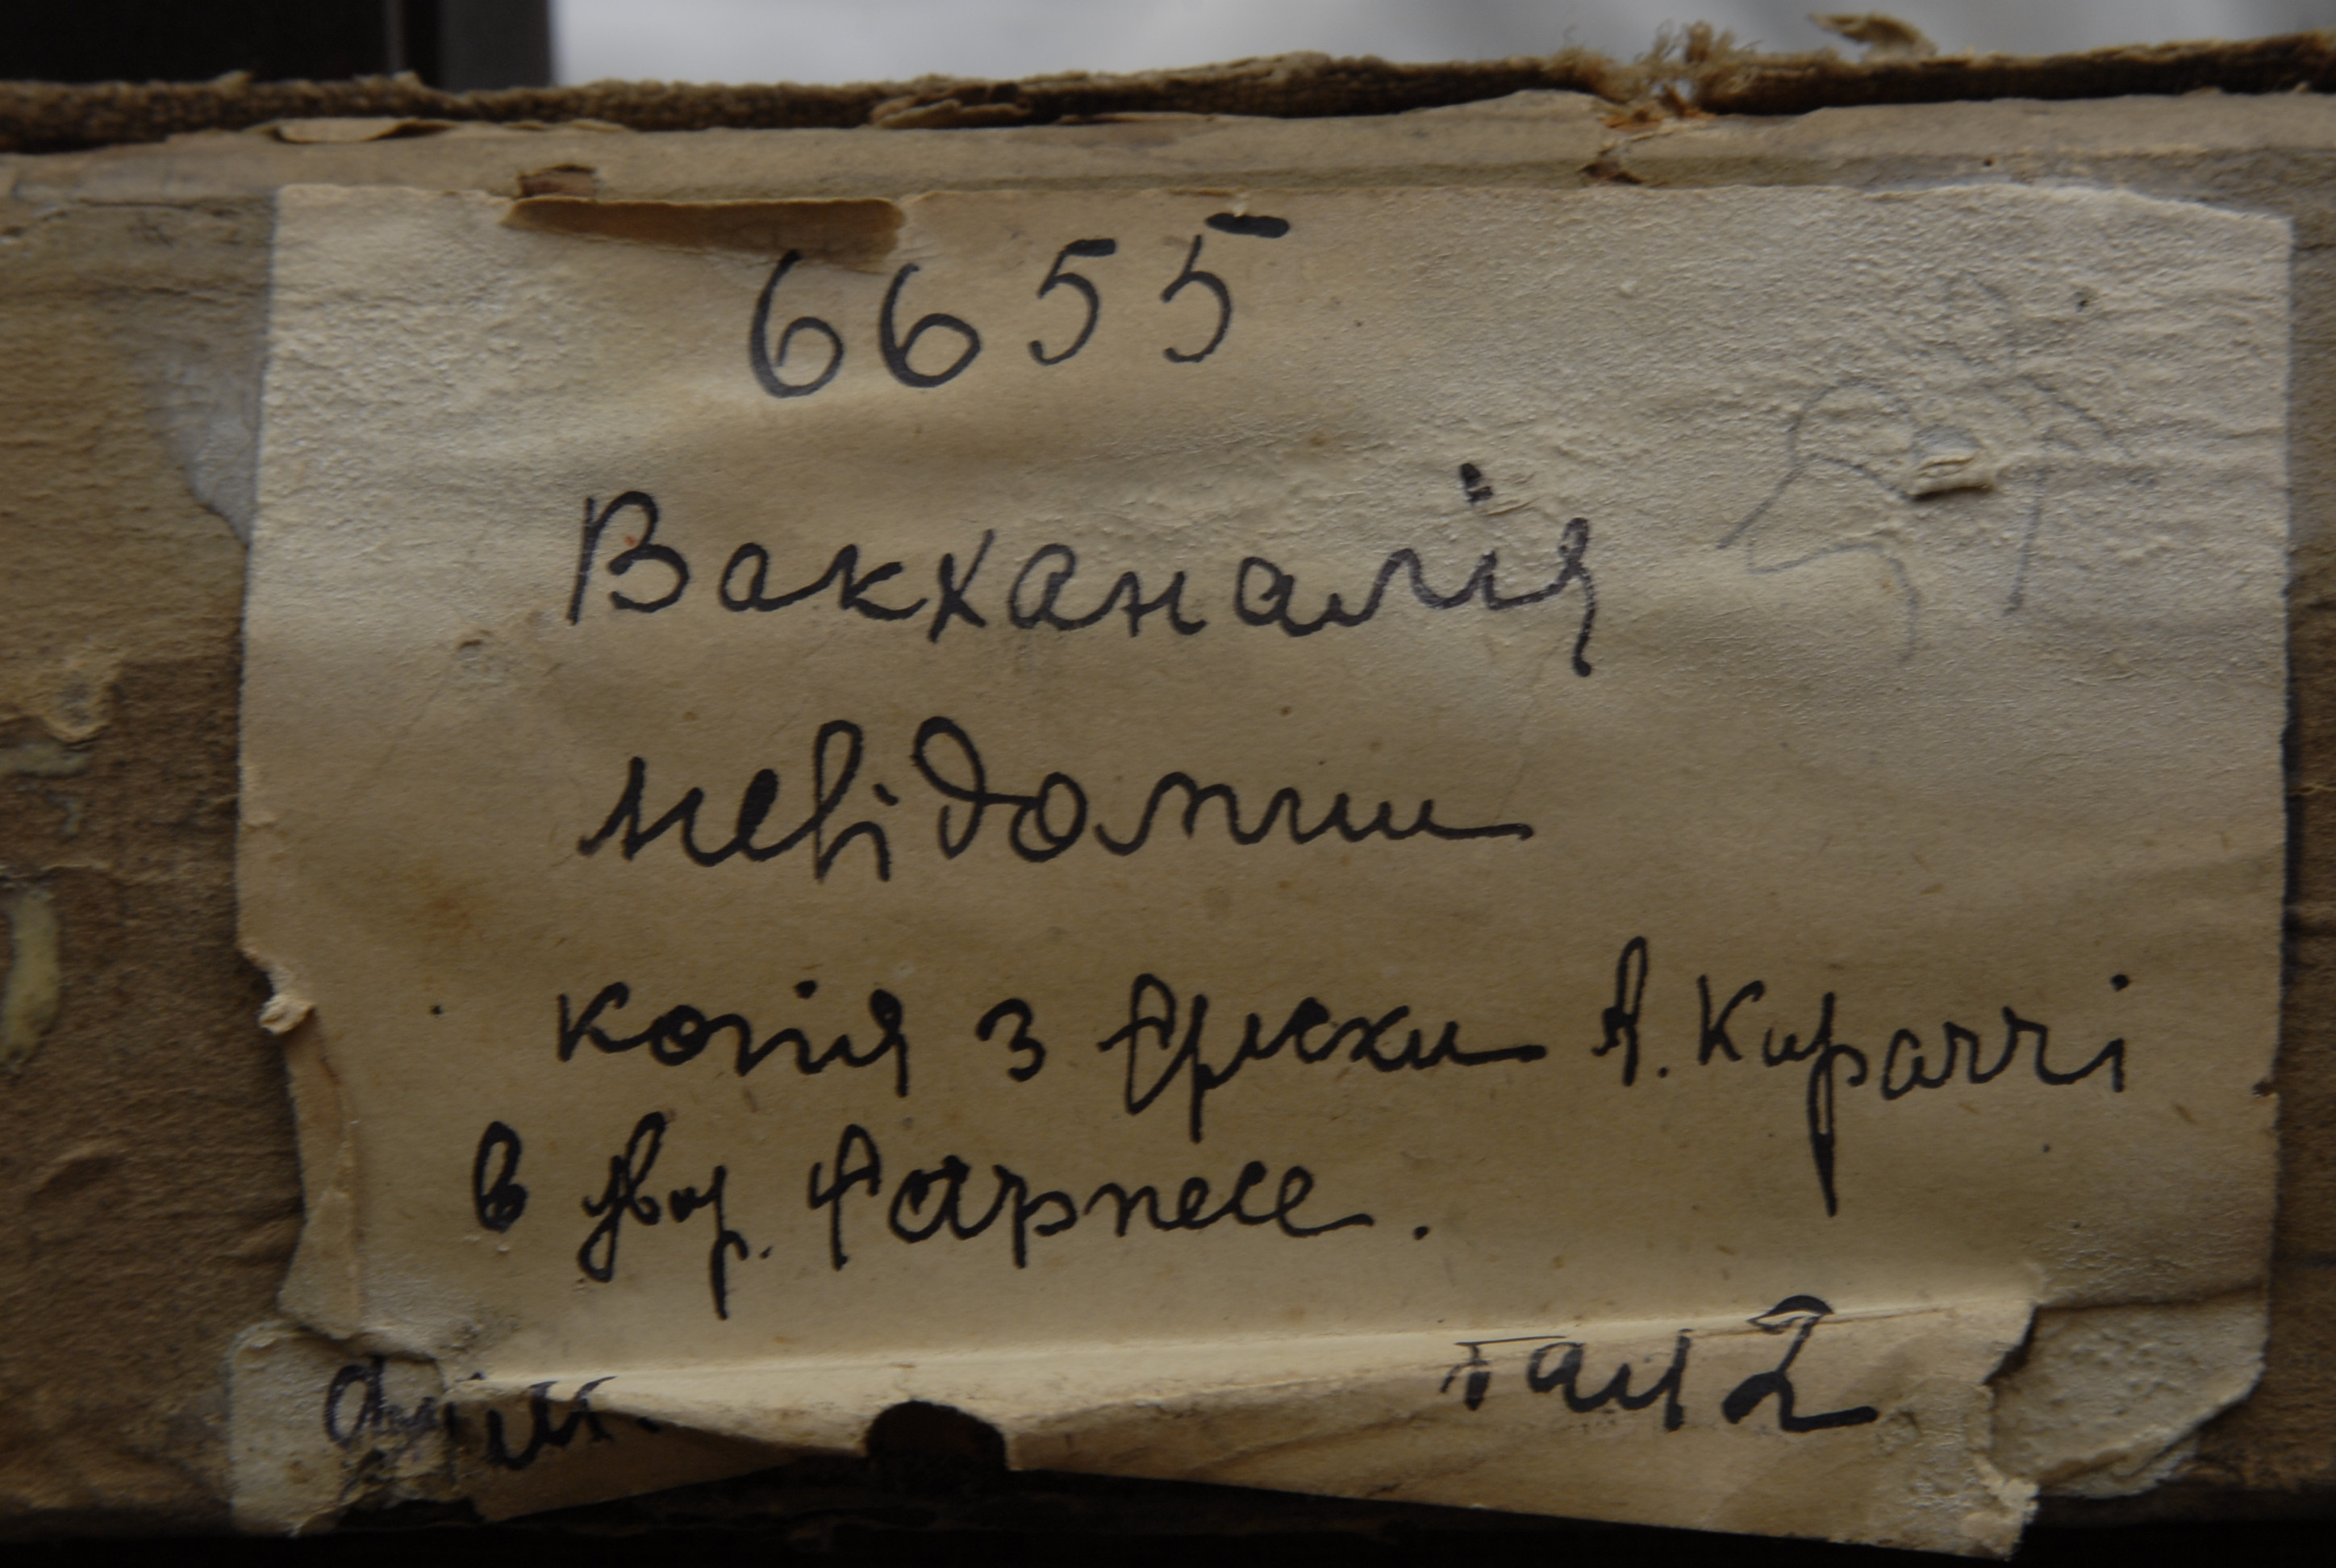 6655
Вакханалія
невідомий
копія з фрески А. Караччі
в двор. Фарнезе.